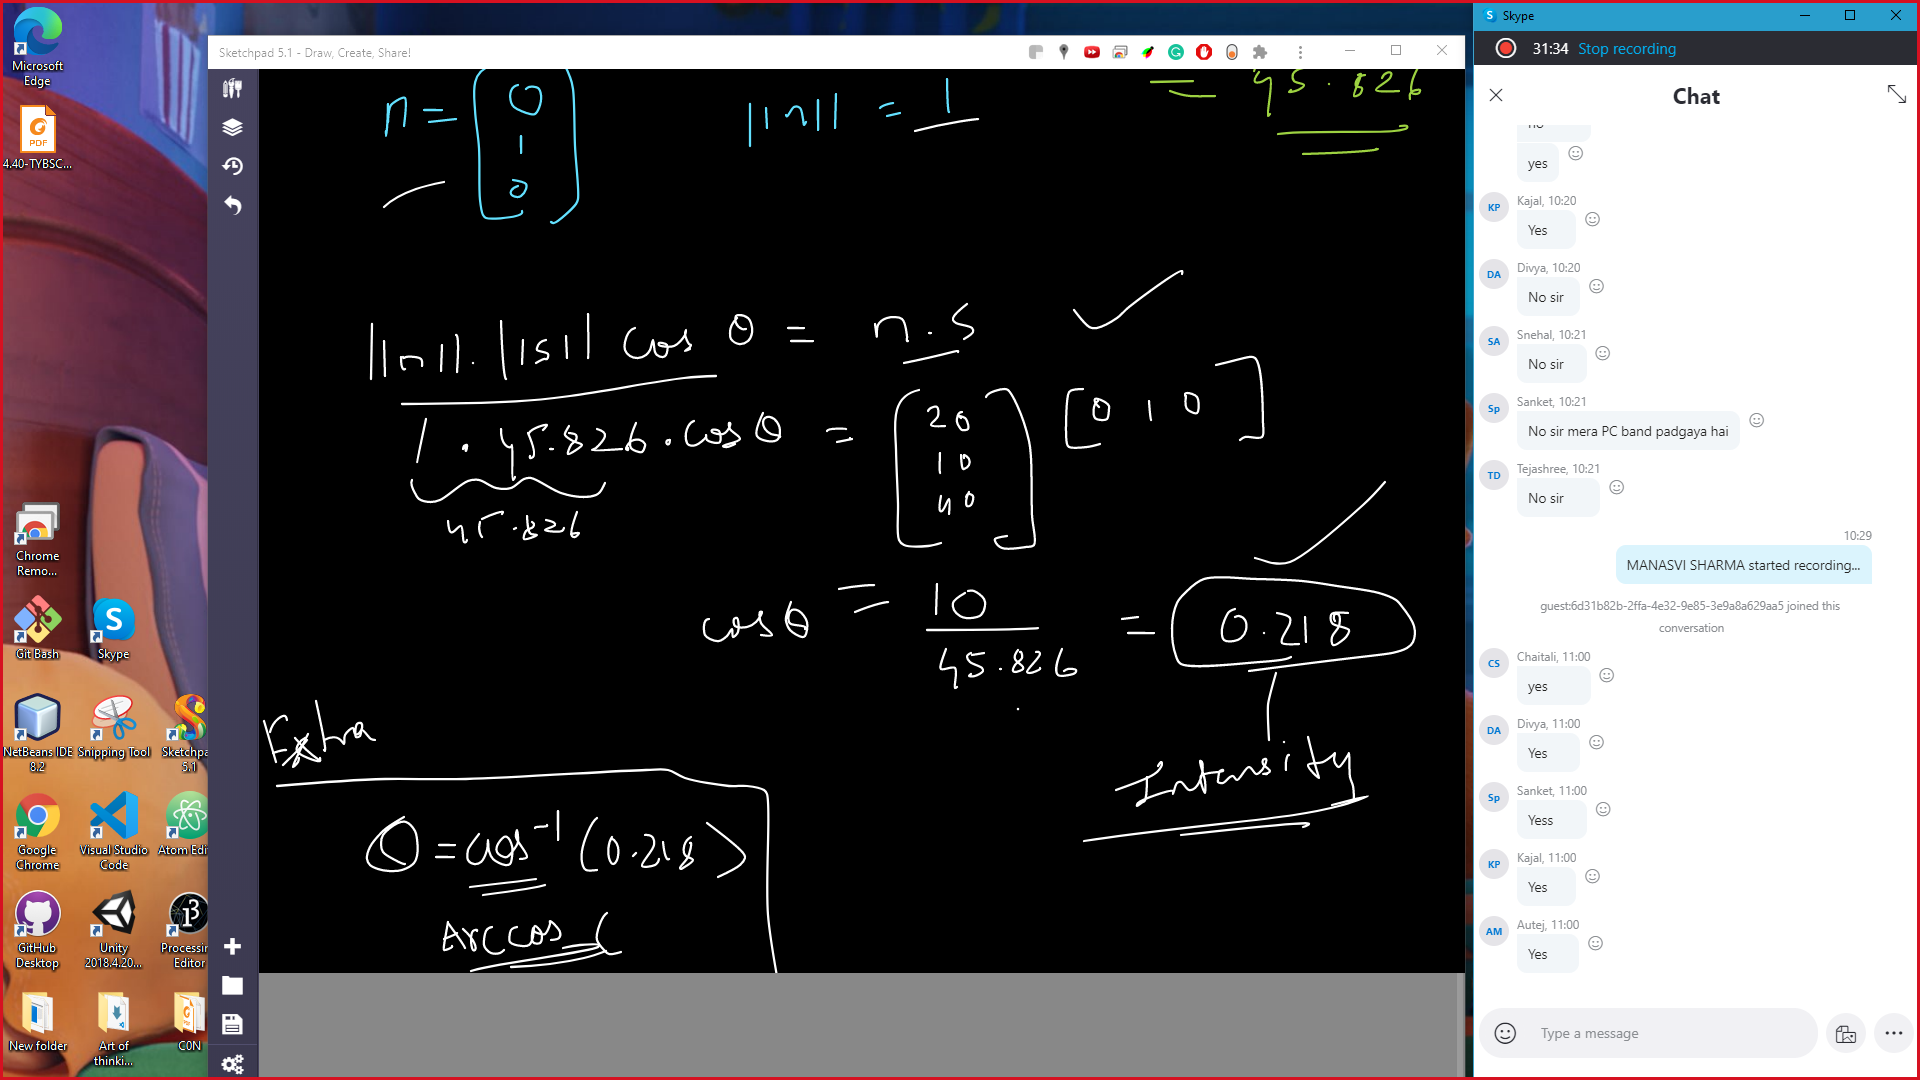 Microsoft Edge
4.40-TYBSC...
Chrome Remo...
Git Bash
Skype
NetBeans IDE 8.2
Snipping Tool
Sketchpa 5.1
Google Chrome
Visual Studio Code
Atom Edi
GitHub Desktop
Unity 2018.4.20...
Processin Editor
New folder
Art of thinki...
C0N
Sketchpad 5.1 - Draw, Create, Share!
n = [0 1 0]
||n|| = 1
= 45.826
||n||. ||s|| cos θ = n.s
1 . 45.826 . cos θ = [20 10 40] [0 1 0]
45.826
cos θ = 10 / 45.826 = 0.218
Intensity
Extra
θ = cos⁻¹ (0.218)
Arccos (
Skype
31:34 Stop recording
Chat
no
yes
KP
Kajal, 10:20
Yes
DA
Divya, 10:20
No sir
SA
Snehal, 10:21
No sir
Sp
Sanket, 10:21
No sir mera PC band padgaya hai
TD
Tejashree, 10:21
No sir
10:29
MANASVI SHARMA started recording...
guest:6d31b82b-2ffa-4e32-9e85-3e9a8a629aa5 joined this
conversation
CS
Chaitali, 11:00
yes
DA
Divya, 11:00
Yes
Sp
Sanket, 11:00
Yess
KP
Kajal, 11:00
Yes
AM
Autej, 11:00
Yes
Type a message